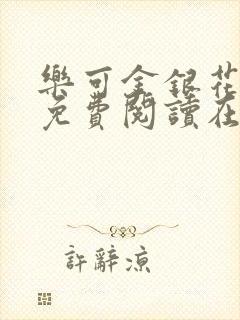 樂可金銀花
免費閱讀在
許辭涼